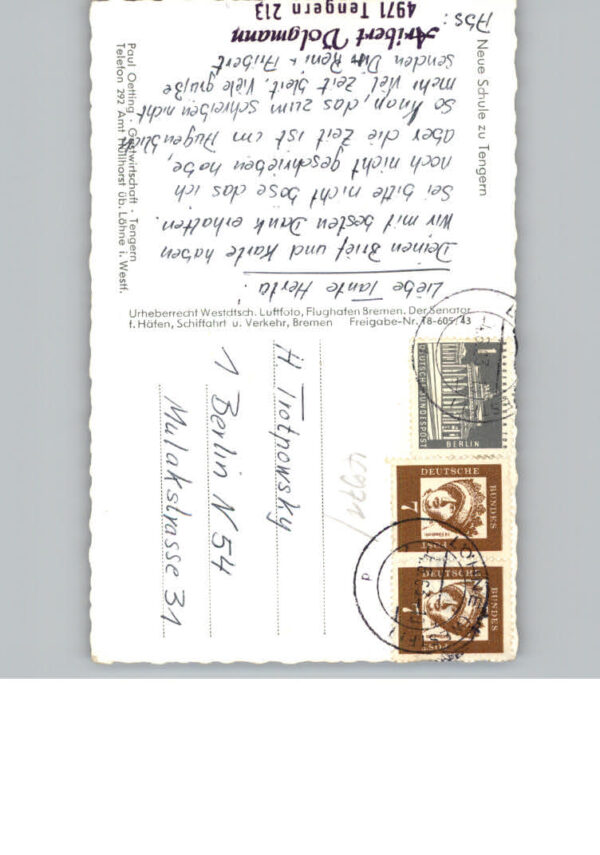 Neue Schule zu Tengern
Abs:
Aribert Dolgmann
4971 Tengern 213
Liebe Tante Herta!
Deinen Brief und Karte haben
wir mit besten Dank erhalten.
Sei bitte nicht böse das ich
noch nicht geschrieben habe,
aber die Zeit ist im Augenblick
so knap, das zum schreiben nicht
mehr viel Zeit bleit. Viele grüße
senden Dir Reni u. Aribert
Paul Oetting · Gastwirtschaft · Tengern
Telefon 292 Amt Hüllhorst üb. Löhne i. Westf.
Urheberrecht Westdtsch. Luftfoto, Flughafen Bremen. Der Senator
f. Häfen, Schiffahrt u. Verkehr, Bremen Freigabe-Nr. 18-605/43
H. Trotpowsky
1 Berlin N 54
Mulakstrasse 31
1
DEUTSCHE BUNDESPOST
BERLIN
DEUTSCHE
BUNDES
POST
7
DEUTSCHE
BUNDES
POST
7
LÖHNE